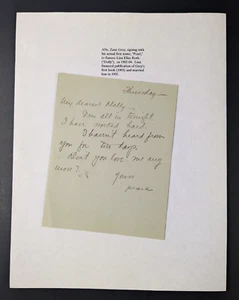 ANs, Zane Grey, signing with
his actual first name, "Pearl",
to fiancee Lina Elise Roth,
("Dolly"), ca 1902-04. Lina
financed publication of Grey's
first book (1903) and married
him in 1905
Thursday —
My dearest Dolly —
I'm all in tonight
I have worked hard.
I haven't heard from
you for two days.
Don't you love me any
more?
Yours
Pearl